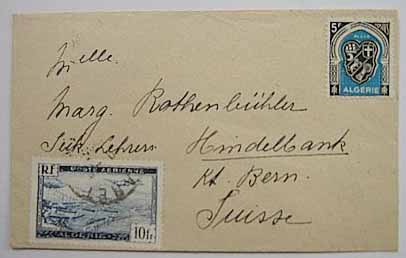 5F
ALGER
ALGÉRIE
Melle.
Marg. Rothenbühler
Sek. Lehrerin Hindelbank
Kt. Bern.
Suisse
RF POSTE AÉRIENNE
ALGÉRIE 10fr